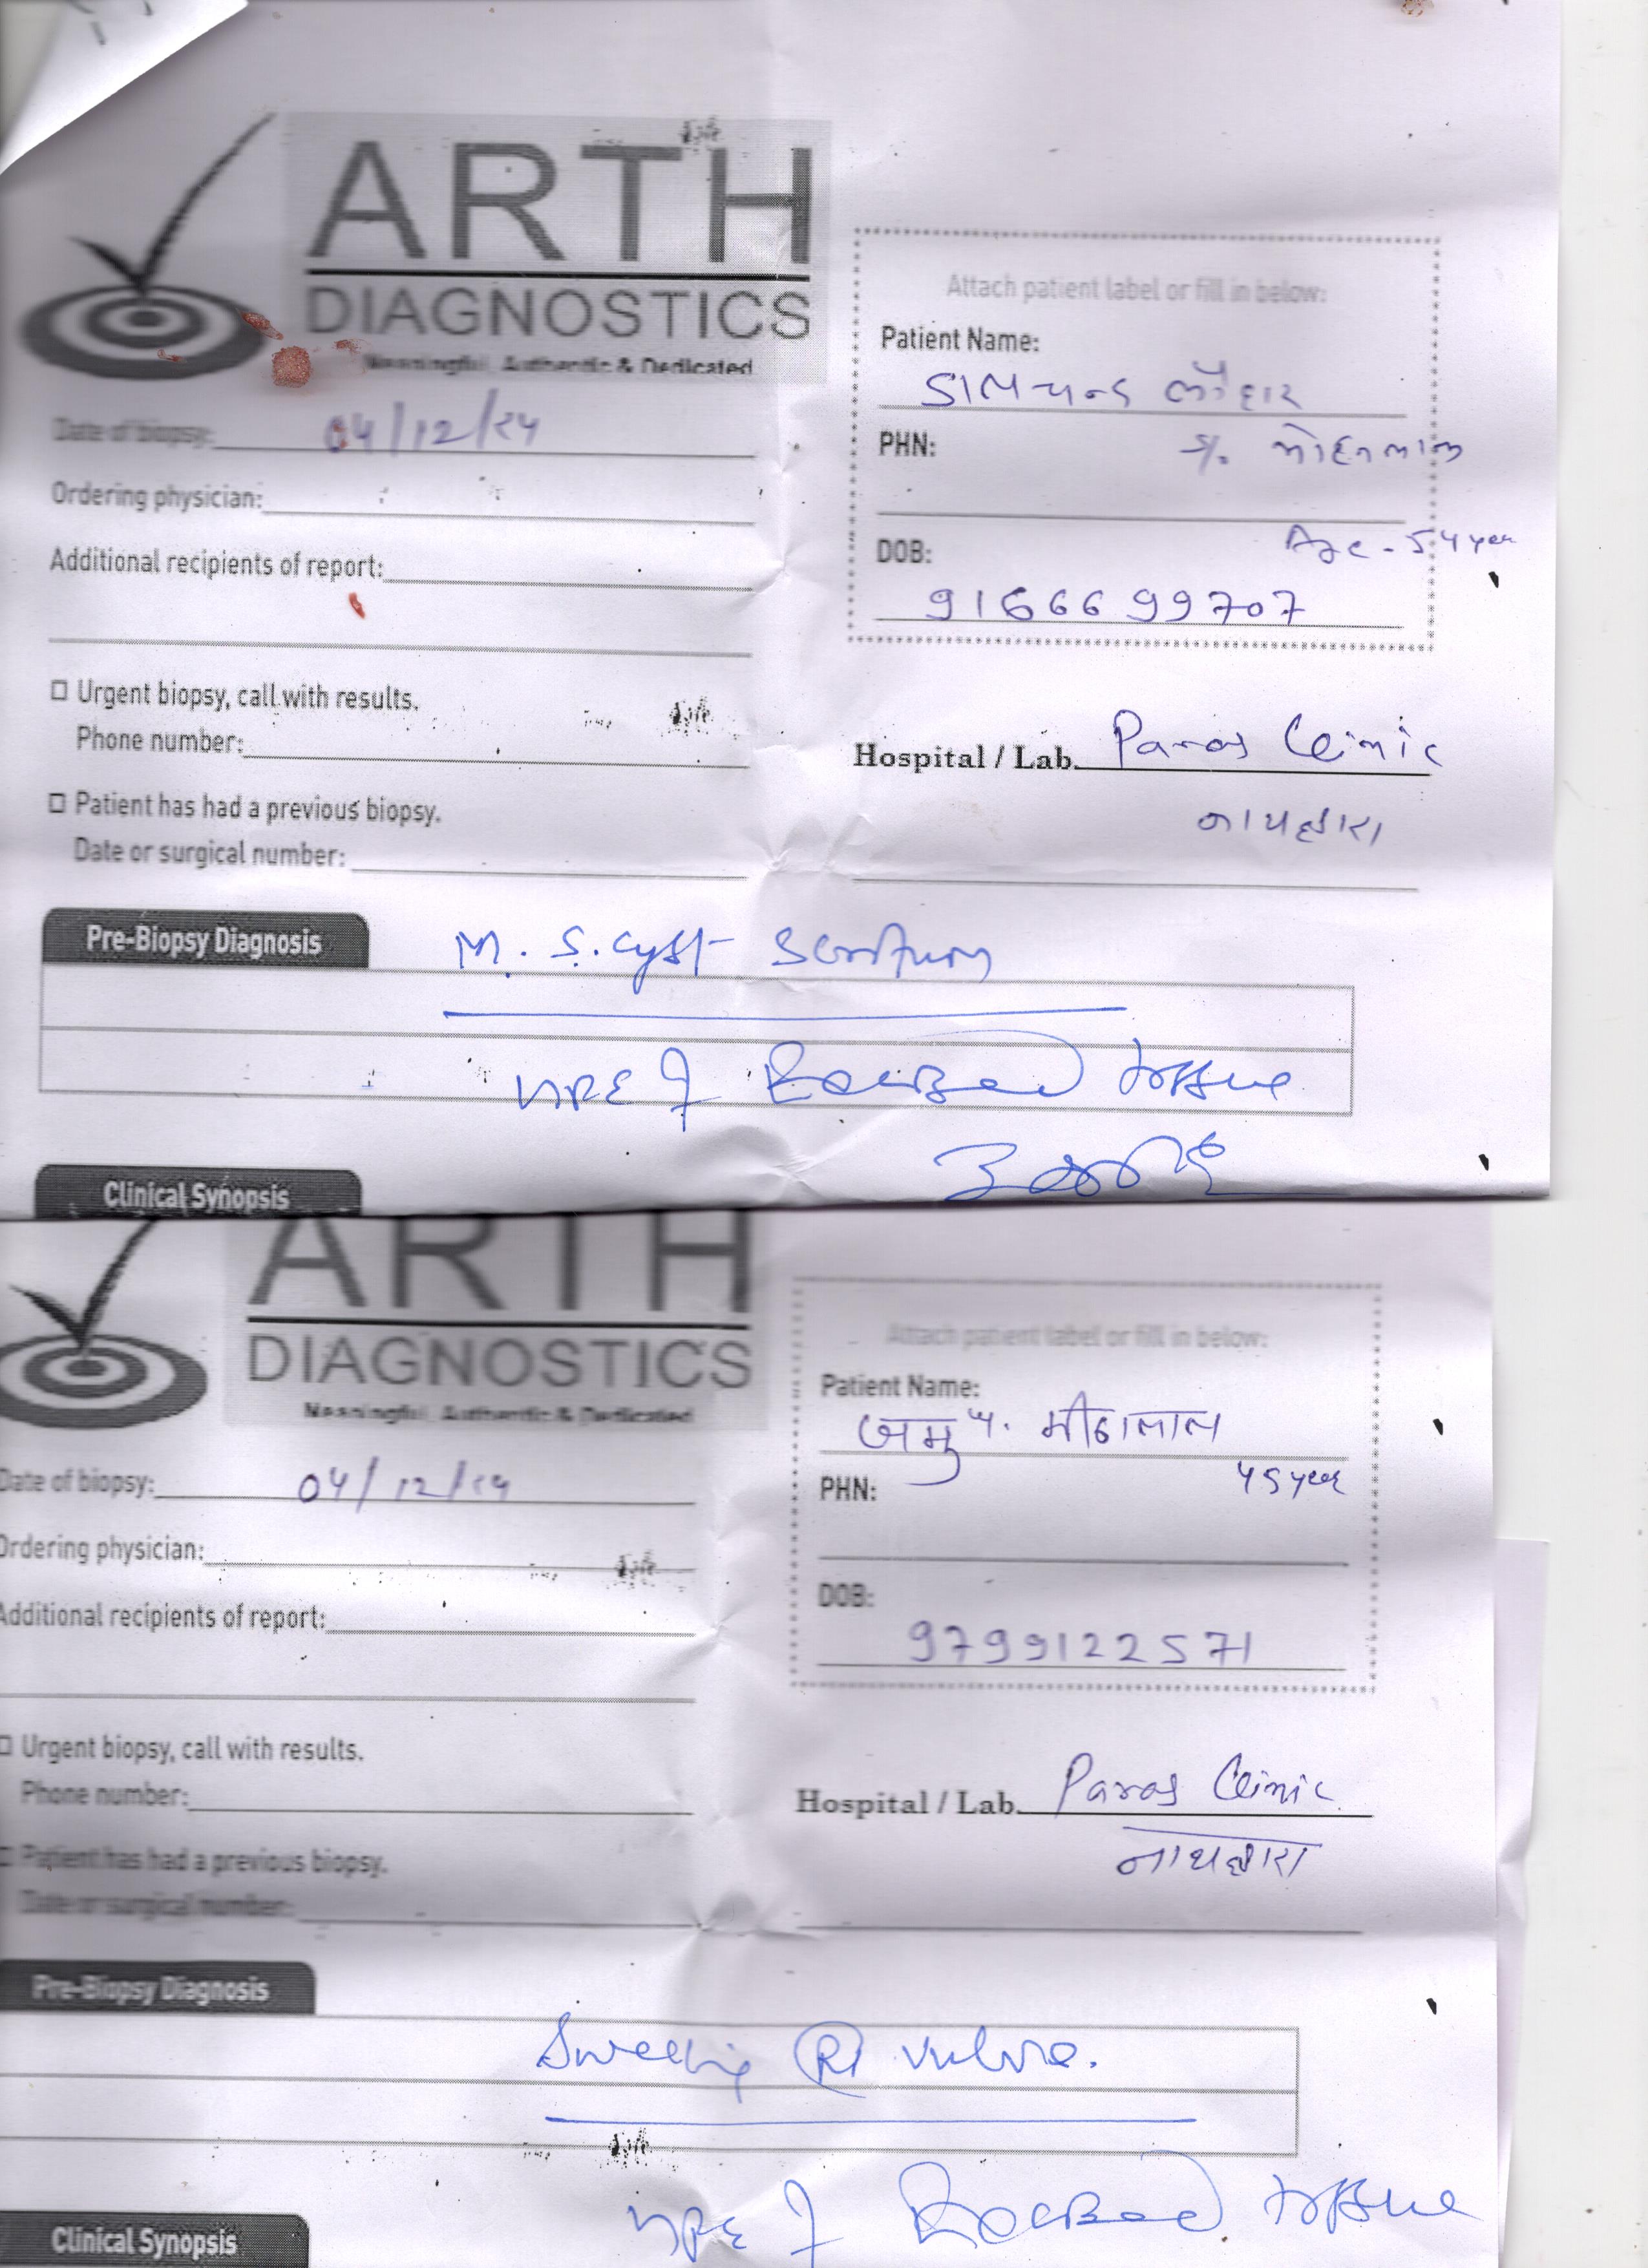 ARTH
DIAGNOSTICS
Meaningful, Authentic & Dedicated
Attach patient label or fill in below:
Patient Name:
डालचन्द लौहार
Date of biopsy: 04/12/24
PHN: S/o मोहनलाल
Ordering physician:
Age - 54 year
DOB:
9166699707
Additional recipients of report:
Urgent biopsy, call with results.
Phone number:
Hospital / Lab. Paras Clinic
नाथद्वारा
Patient has had a previous biopsy.
Date or surgical number:
Pre-Biopsy Diagnosis
M. S. cyst Scrotum
HPE of Excised tissue
Clinical Synopsis
ARTH
DIAGNOSTICS
Meaningful, Authentic & Dedicated
Attach patient label or fill in below:
Patient Name:
जमु प. मीठालाल
Date of biopsy: 04/12/24
PHN: 45 year
Ordering physician:
DOB:
9799122571
Additional recipients of report:
Urgent biopsy, call with results.
Phone number:
Hospital / Lab. Paras Clinic
नाथद्वारा
Patient has had a previous biopsy.
Date or surgical number:
Pre-Biopsy Diagnosis
Swelling (R) vulva.
HPE of Excised tissue
Clinical Synopsis